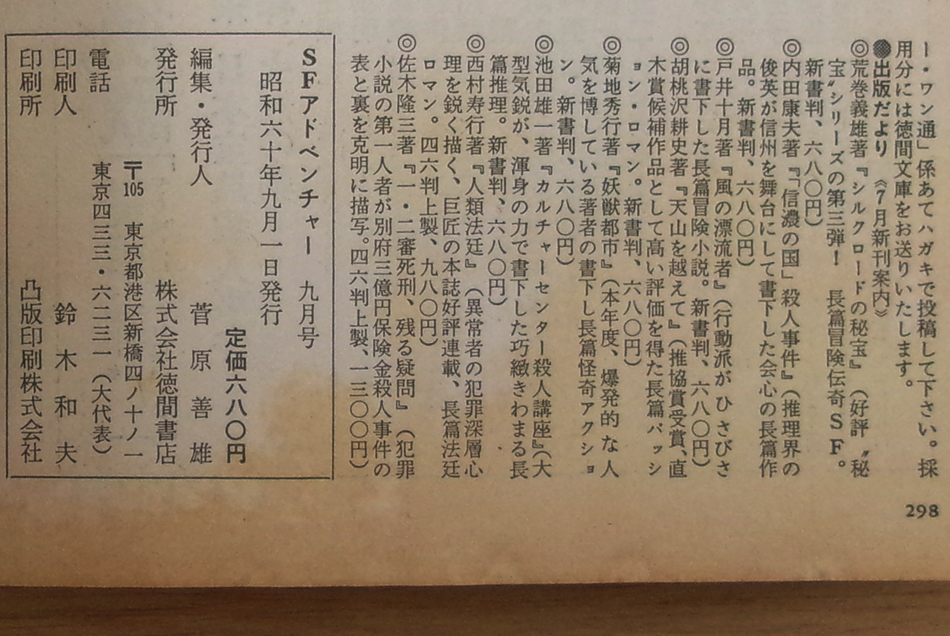 ー・ワン通」係あてハガキで投稿して下さい。採
用分には徳間文庫をお送りいたします。
●出版だより《7月新刊案内》
◎荒巻義雄著『シルクロードの秘宝』（好評〝秘
宝〟シリーズの第三弾！　長篇冒険伝奇ＳＦ。
新書判、六八〇円）
◎内田康夫著『「信濃の国」殺人事件』（推理界の
俊英が信州を舞台にして書下した会心の長篇作
品。新書判、六八〇円）
◎戸井十月著『風の漂流者』（行動派がひさびさ
に書下した長篇冒険小説。新書判、六八〇円）
◎胡桃沢耕史著『天山を越えて』（推協賞受賞、直
木賞候補作品として高い評価を得た長篇パッシ
ョン・ロマン。新書判、六八〇円）
◎菊地秀行著『妖獣都市』（本年度、爆発的な人
気を博している著者の書下し長篇怪奇アクショ
ン。新書判、六八〇円）
◎池田雄一著『カルチャーセンター殺人講座』（大
型気鋭が、渾身の力で書下した巧緻きわまる長
篇推理。新書判、六八〇円）
◎西村寿行著『人類法廷』（異常者の犯罪深層心
理を鋭く描く、巨匠の本誌好評連載、長篇法廷
ロマン。四六判上製、九八〇円）
◎佐木隆三著『一・二審死刑、残る疑問』（犯罪
小説の第一人者が別府三億円保険金殺人事件の
表と裏を克明に描写。四六判上製、一三〇〇円）
ＳＦアドベンチャー　九月号
昭和六十年九月一日発行
定価六八〇円
編集・発行人　菅原善雄
発行所　株式会社徳間書店
〒105　東京都港区新橋四ノ十ノ一
電話　東京四三三・六二三一（大代表）
印刷人　鈴木和夫
印刷所　凸版印刷株式会社
298